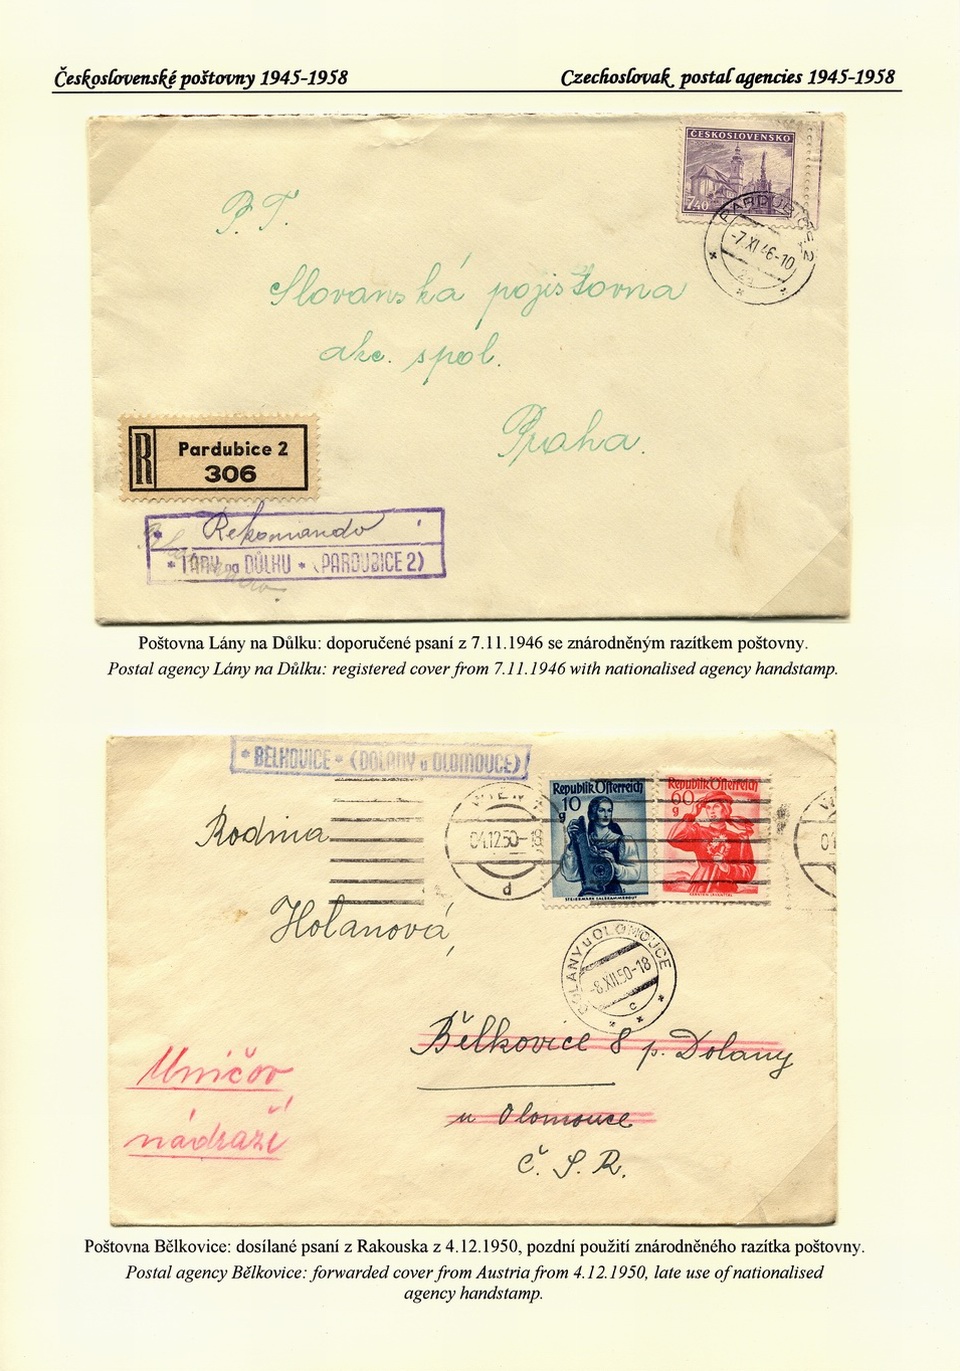 Československé poštovny 1945-1958
Czechoslovak postal agencies 1945-1958
ČESKOSLOVENSKO
7.40
PARDUBICE 2
-7.XI.46-10
2a
P. T.
Slovanská pojišťovna
akc. spol.
Praha.
R Pardubice 2
306
Rekomando
* LÁNY na DŮLKU * (PARDUBICE 2)
Poštovna Lány na Důlku: doporučené psaní z 7.11.1946 se znárodněným razítkem poštovny.
Postal agency Lány na Důlku: registered cover from 7.11.1946 with nationalised agency handstamp.
* BĚLKOVICE * (DOLANY u OLOMOUCE)
WIEN
04.12.50-18
d
Republik Österreich
10
g
STEIERMARK SALZKAMMERGUT
Republik Österreich
60
g
Rodina
Holanová,
DOLANY u OLOMOUCE
-8.XII.50-18
c
Bělkovice 8 p. Dolany
u Olomouce
Č. S. R.
Uničov
nádraží
Poštovna Bělkovice: dosílané psaní z Rakouska z 4.12.1950, pozdní použití znárodněného razítka poštovny.
Postal agency Bělkovice: forwarded cover from Austria from 4.12.1950, late use of nationalised
agency handstamp.